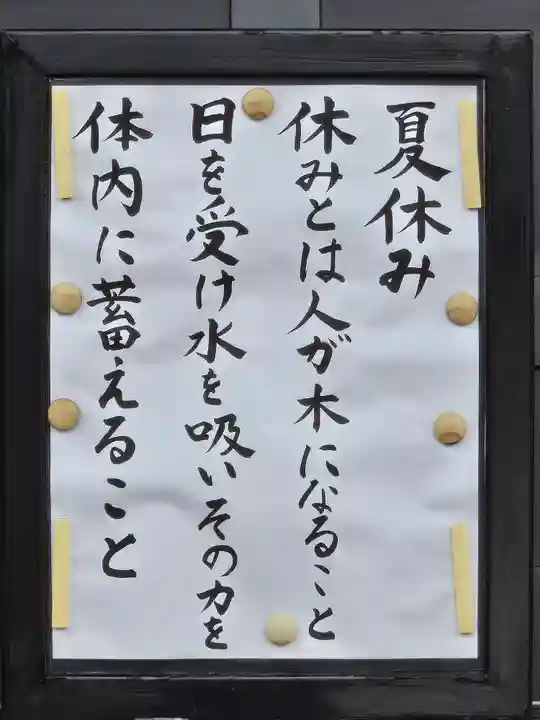 夏休み
休みとは人が木になること
日を受け水を吸いその力を
体内に蓄えること